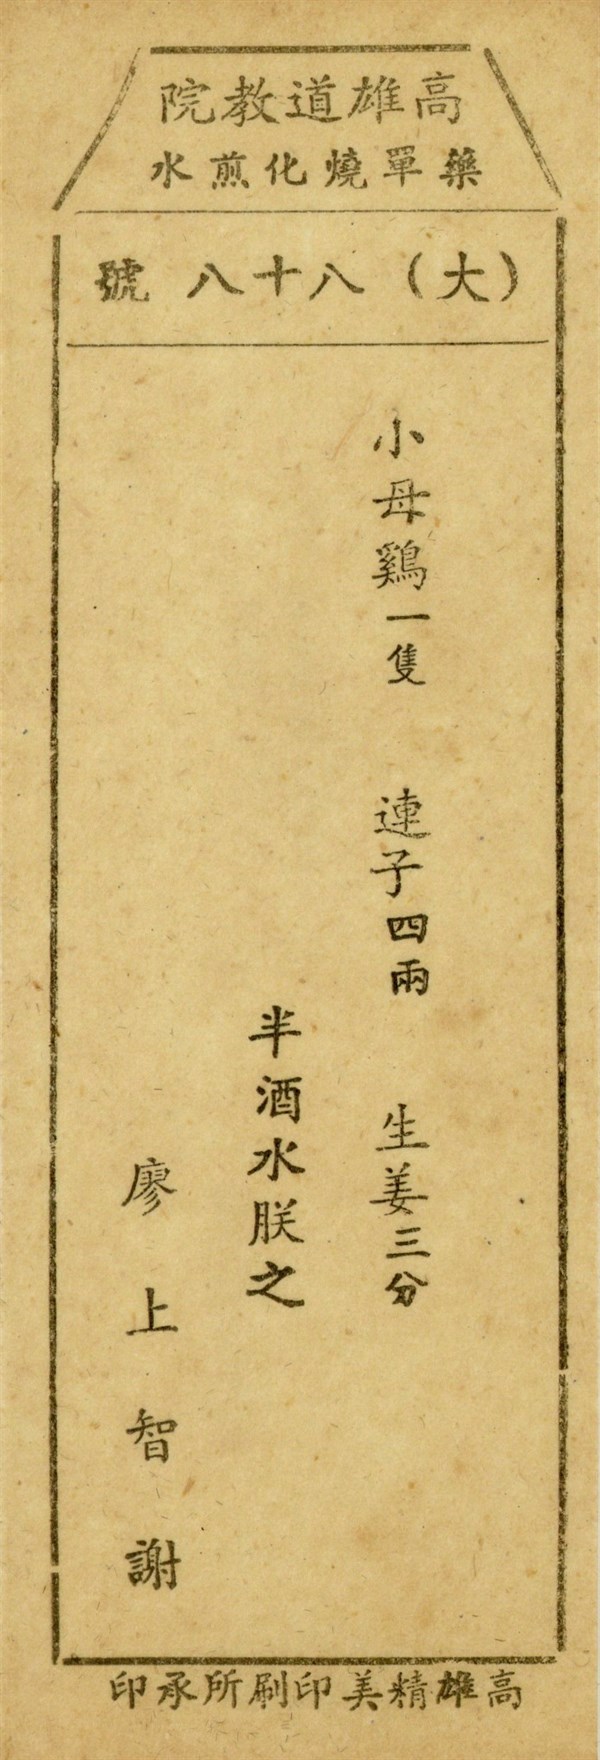 高雄道教院
藥單燒化煎水
（大）八十八號
小母鷄一隻　連子四兩　生姜三分
半酒水朕之
廖上智謝
高雄精美印刷所承印